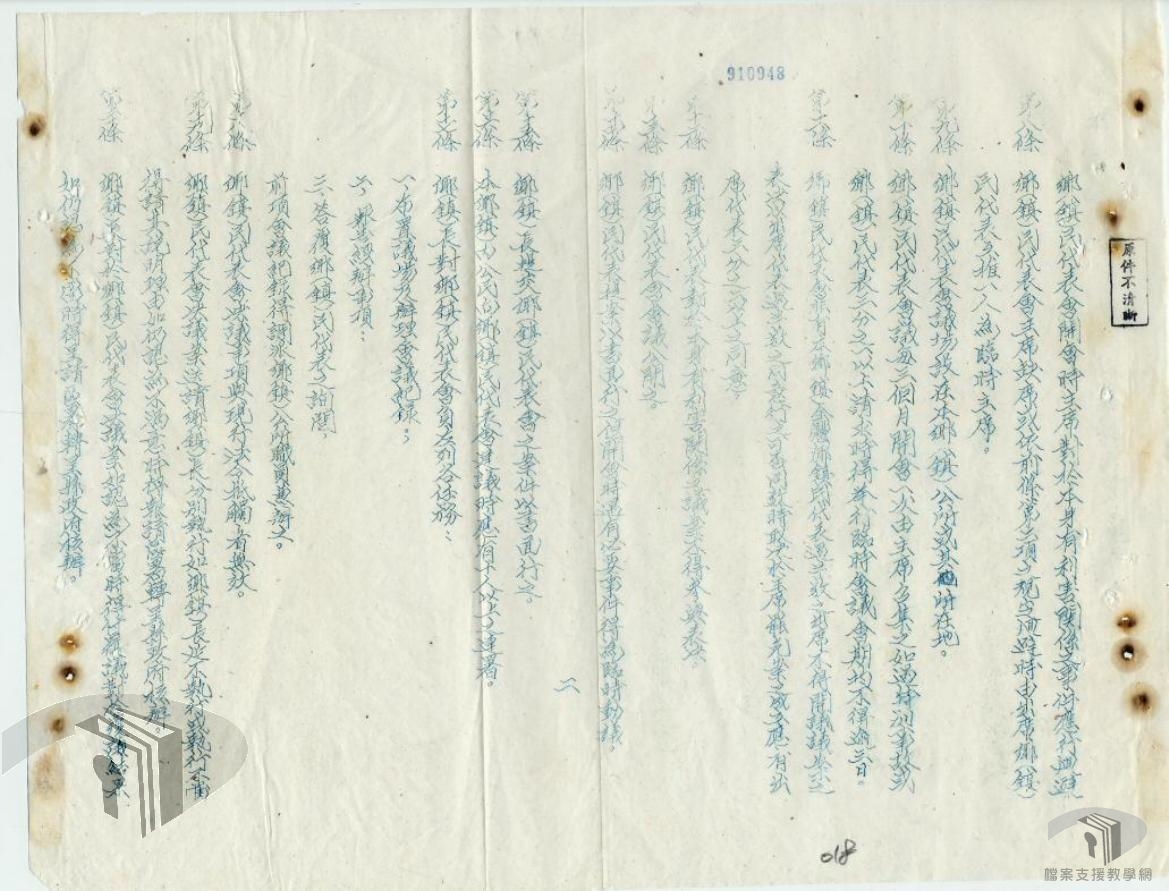 910948
原件不清晰
鄉（鎮）民代表會開會時主席對於本身有利害關係之事件應行迴避
第八條　鄉（鎮）民代表會主席缺席或依前條第二項之規定迴避時由出席鄉（鎮）
民代表互推一人為臨時主席。
第九條　鄉（鎮）民代表會議場設在本鄉（鎮）公所或其所在地。
第十條　鄉（鎮）民代表會議每三個月開會一次由主席召集之如遇特別事故或
鄉（鎮）民代表三分之一以上請求時得舉行臨時會議會期均不得逾三日。
第十一條　鄉（鎮）民代表會非有本鄉（鎮）全體鄉鎮民代表過半數之出席不得開議議案之
表決以出席代表過半數之同意行之可否同數時取決於主席罷免案之成立應有出
席代表三分之二以上之同意。
第十二條　鄉（鎮）民代表對於本身有利害關係之議案不得參與表決。
第十三條　鄉（鎮）民代表會會議公開之。
第十四條　鄉（鎮）民代表提案以書面行之在開會時遇有必要事件得為臨時動議。
二
第十五條　鄉（鎮）長提交鄉（鎮）民代表會之案件以書面行之。
第十六條　本鄉（鎮）內公民向鄉（鎮）民代表會建議時應有十人以上之連署。
第十七條　鄉（鎮）長對鄉（鎮）民代表會負左列各任務：
一、布置議場及辦理會議紀錄。
二、報告經辦事項。
三、答覆鄉（鎮）民代表之詢問。
前項會議紀錄得調派鄉（鎮）公所職員兼辦之。
第十八條　鄉（鎮）民代表會決議事項與現行法令牴觸者無效。
第十九條　鄉（鎮）民代表會決議案送請鄉（鎮）長分別執行如鄉（鎮）長延不執行或執行不當
得請其說明理由如仍認為不滿意時得報請區署轉呈縣政府核辦。
第二十條　鄉（鎮）長對於鄉（鎮）民代表會之議案如認為不當時得送請覆議對於覆議結果
如仍認為不當時得呈請區署轉呈縣政府核辦。
018
檔案支援教學網